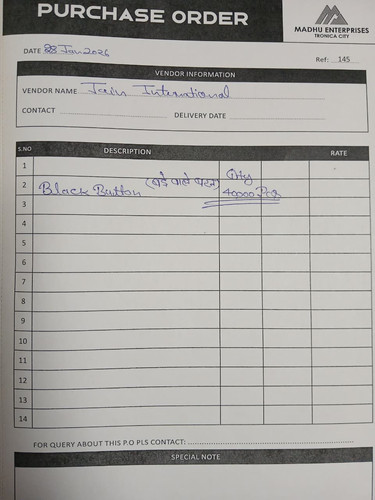 PURCHASE ORDER
MADHU ENTERPRISES
TRONICA CITY
DATE 28 Jan 2026
Ref: 145
VENDOR INFORMATION
VENDOR NAME Jain International
CONTACT
DELIVERY DATE
S.NO DESCRIPTION RATE
1 Qty
2 Black Button (बड़े वाले बटन) 40000 Pcs
3
4
5
6
7
8
9
10
11
12
13
14
FOR QUERY ABOUT THIS P.O PLS CONTACT:
SPECIAL NOTE